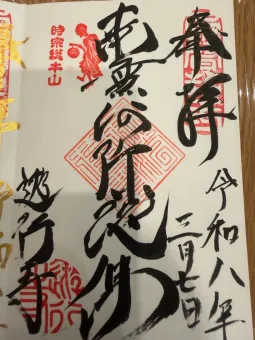 奉拝
令和八年
三月七日
南無阿弥陀佛
時宗総本山
遊行寺